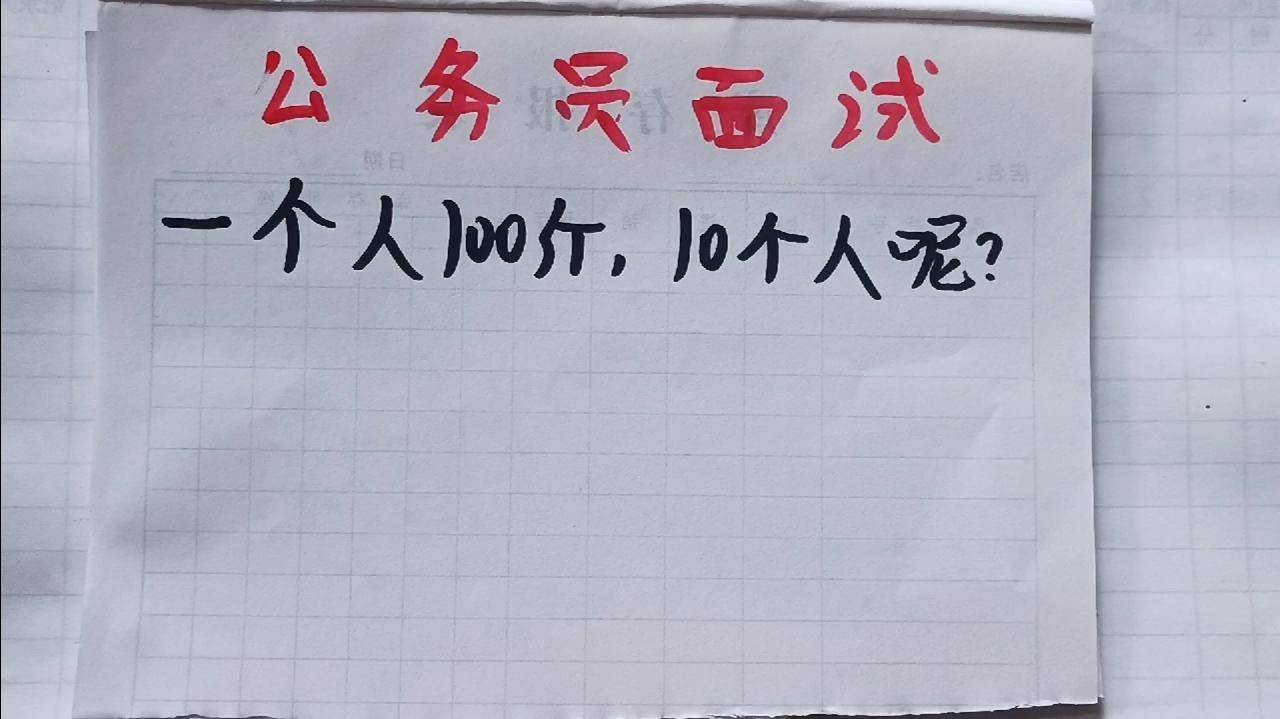 公务员面试
一个人100斤，10个人呢？